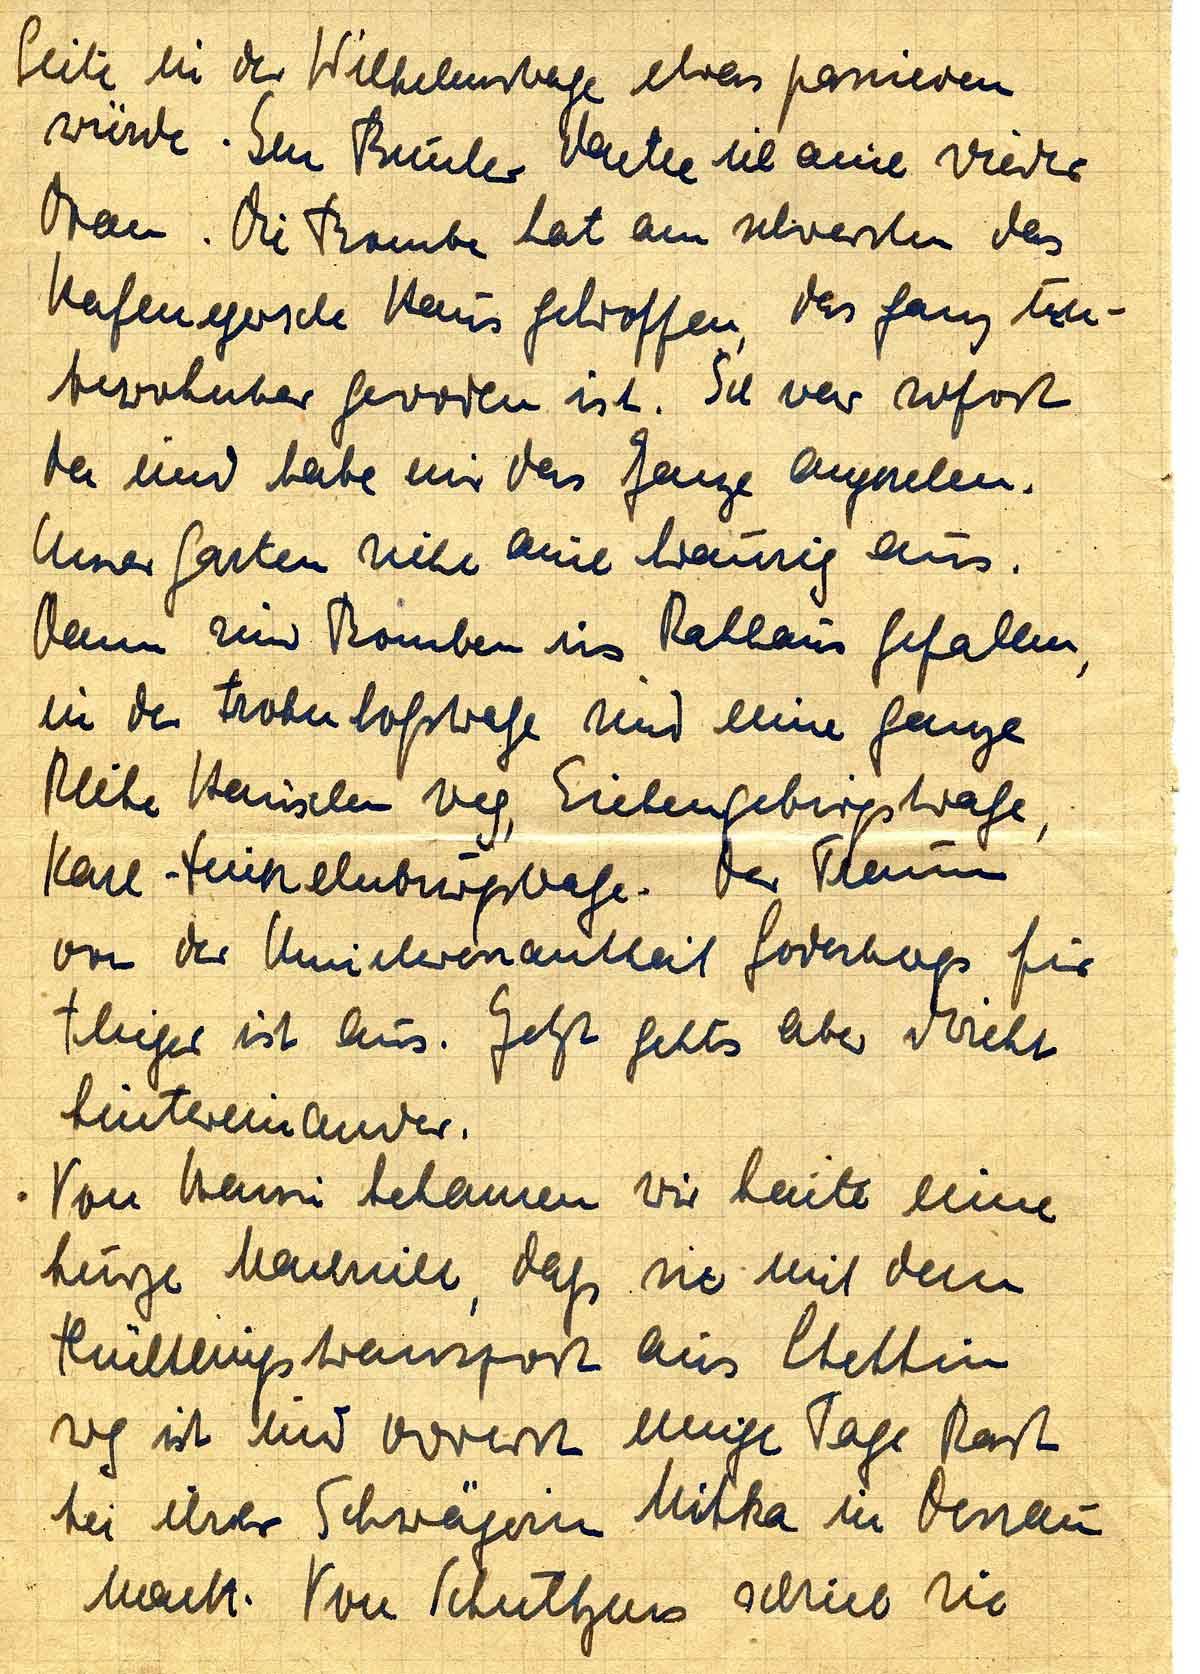 Seite in der Wilhelmstraße etwas passieren
würde. Im Bunker dachte ich auch wieder
dran. Die Bombe hat am schwersten das
Haus getroffen, das ganz un-
bewohnbar geworden ist. Ich war sofort
da und habe mir das Ganze angesehen.
Unser Garten sieht auch traurig aus.
Dann sind Bomben ins Rathaus gefallen,
in der Bahnhofstraße sind eine ganze
Reihe Häuschen weg, Siebengebirgstraße,
Karl-Finkelnburgstraße. Der Traum
von der Uninteressantheit Godesbergs für
Flieger ist aus. Jetzt gehts aber dicht
hintereinander.
Von Hanni bekamen wir heute eine
kurze Nachricht, daß sie mit dem
Flüchtlingstransport aus Stettin
weg ist und vorerst einige Tage Rast
bei ihrer Schwägerin Mitka in Dessau
macht. Von schrieb sie